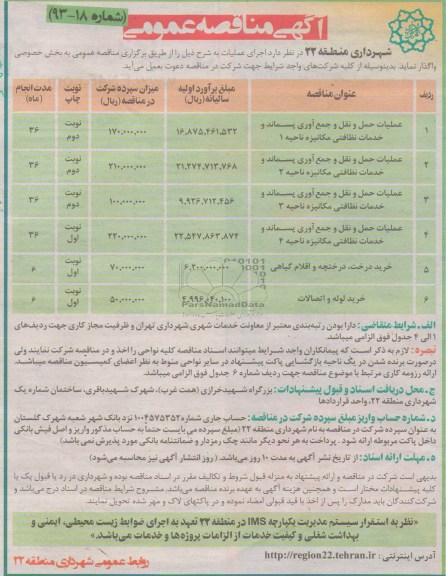 آگهی مناقصه عمومی
(شماره ۱۸-۹۳)
شهرداری منطقه ۲۲ در نظر دارد اجرای عملیات به شرح ذیل را از طریق برگزاری مناقصه عمومی به بخش خصوصی
واگذار نماید. بدینوسیله از کلیه شرکت‌های واجد شرایط جهت شرکت در مناقصه دعوت بعمل می‌آید.
ردیف عنوان مناقصه مبلغ برآورد اولیه سالیانه (ریال) میزان سپرده شرکت در مناقصه (ریال) نوبت چاپ مدت انجام (ماه)
۱ عملیات حمل و نقل و جمع آوری پسماند و خدمات نظافتی مکانیزه ناحیه ۱ ۱۶,۸۷۵,۴۶۱,۵۳۲ ۱۷۰,۰۰۰,۰۰۰ نوبت دوم ۳۶
۲ عملیات حمل و نقل و جمع آوری پسماند و خدمات نظافتی مکانیزه ناحیه ۲ ۲۱,۲۷۴,۷۱۳,۷۶۸ ۲۱۰,۰۰۰,۰۰۰ نوبت دوم ۳۶
۳ عملیات حمل و نقل و جمع آوری پسماند و خدمات نظافتی مکانیزه ناحیه ۳ ۹,۹۲۶,۷۱۲,۴۵۶ ۱۰۰,۰۰۰,۰۰۰ نوبت دوم ۳۶
۴ عملیات حمل و نقل و جمع آوری پسماند و خدمات نظافتی مکانیزه ناحیه ۴ ۲۲,۵۴۷,۸۶۳,۸۷۴ ۲۲۰,۰۰۰,۰۰۰ نوبت اول ۳۶
۵ خرید درخت، درختچه و اقلام گیاهی ۶,۲۰۰,۰۰۰,۰۰۰ ۷۰,۰۰۰,۰۰۰ نوبت اول ۶
۶ خرید لوله و اتصالات ۵۰,۰۰۰,۰۰۰ نوبت اول ۶
ParsNamadData
الف. شرایط متقاضی: دارا بودن رتبه‌بندی معتبر از معاونت خدمات شهری شهرداری تهران و ظرفیت مجاز کاری جهت ردیف‌های
۱ الی ۴ جدول فوق الزامی میباشد.
تبصره: لازم به ذکر است که پیمانکاران واجد شرایط میتوانند اسناد مناقصه کلیه نواحی را اخذ و در مناقصه شرکت نمایند ولی
در صورت برنده شدن در یک ناحیه بازگشایی پاکت پیشنهاد در سایر نواحی منوط به نظر اعضای کمیسیون مناقصه میباشد.
ارائه رزومه کاری مرتبط با موضوع مناقصه جهت ردیف شماره ۶ جدول فوق الزامی میباشد.
ج. محل دریافت اسناد و قبول پیشنهادات: بزرگراه شهید خرازی (همت غرب)، شهرک شهید باقری، ساختمان شماره یک
شهرداری منطقه ۲۲، واحد قراردادها
د. شماره حساب واریز مبلغ سپرده شرکت در مناقصه: حساب جاری شماره ۱۰۰۴۵۷۵۳۵۲ نزد بانک شهر شعبه شهرک گلستان
به عنوان سپرده شرکت در مناقصه به نام شهرداری منطقه ۲۲ (مبلغ سپرده می بایست حتما به حساب مذکور واریز و اصل فیش بانکی
داخل پاکت مربوطه ارائه شود. پرداخت به هر نحو دیگر مانند چک رمزدار و ضمانتنامه بانکی مورد پذیرش نمی باشد)
ه. مهلت ارائه اسناد: از تاریخ نشر آگهی به مدت ۱۰ روز می‌باشد. (روز انتشار آگهی نیز محاسبه می‌شود)
بدیهی است شرکت در مناقصه و ارائه پیشنهاد به منزله قبول شروط و تکالیف مقرر در اسناد مناقصه بوده و شهرداری در رد یا قبول یک یا
کلیه پیشنهادات مختار است و همچنین هزینه آگهی به عهده برنده مناقصه می‌باشد. مشروح شرایط مناقصه در اسناد درج می‌باشد و
شرکت‌کنندگان باید مدارک را پس از اخذ با قید قبولی امضاء نموده و در پاکتهای لاک و مهر شده تحویل نمایند.
«نظر به استقرار سیستم مدیریت یکپارچه IMS در منطقه ۲۲ تعهد به اجرای ضوابط زیست محیطی، ایمنی و
بهداشت شغلی و کیفیت خدمات از الزامات پروژه‌ها و خدمات می‌باشد.»
آدرس اینترنتی: http://region22.tehran.ir
روابط عمومی شهرداری منطقه ۲۲